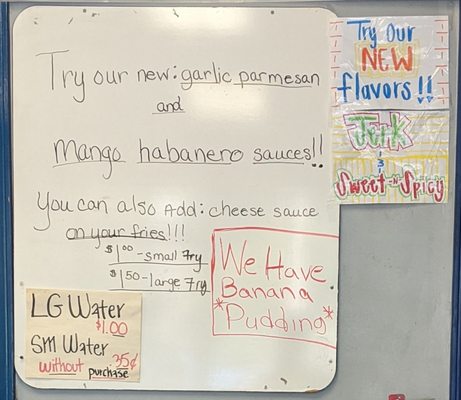 Try our new: garlic parmesan
and
Mango habanero sauces!!
You can also Add: cheese sauce
on your fries!!!
$1.00 - small fry
$1.50 - large fry
We Have
Banana
*Pudding*
LG Water
$1.00
SM Water
35¢
without purchase
Try Our
NEW
flavors!!
Jerk
&
Sweet-N-Spicy